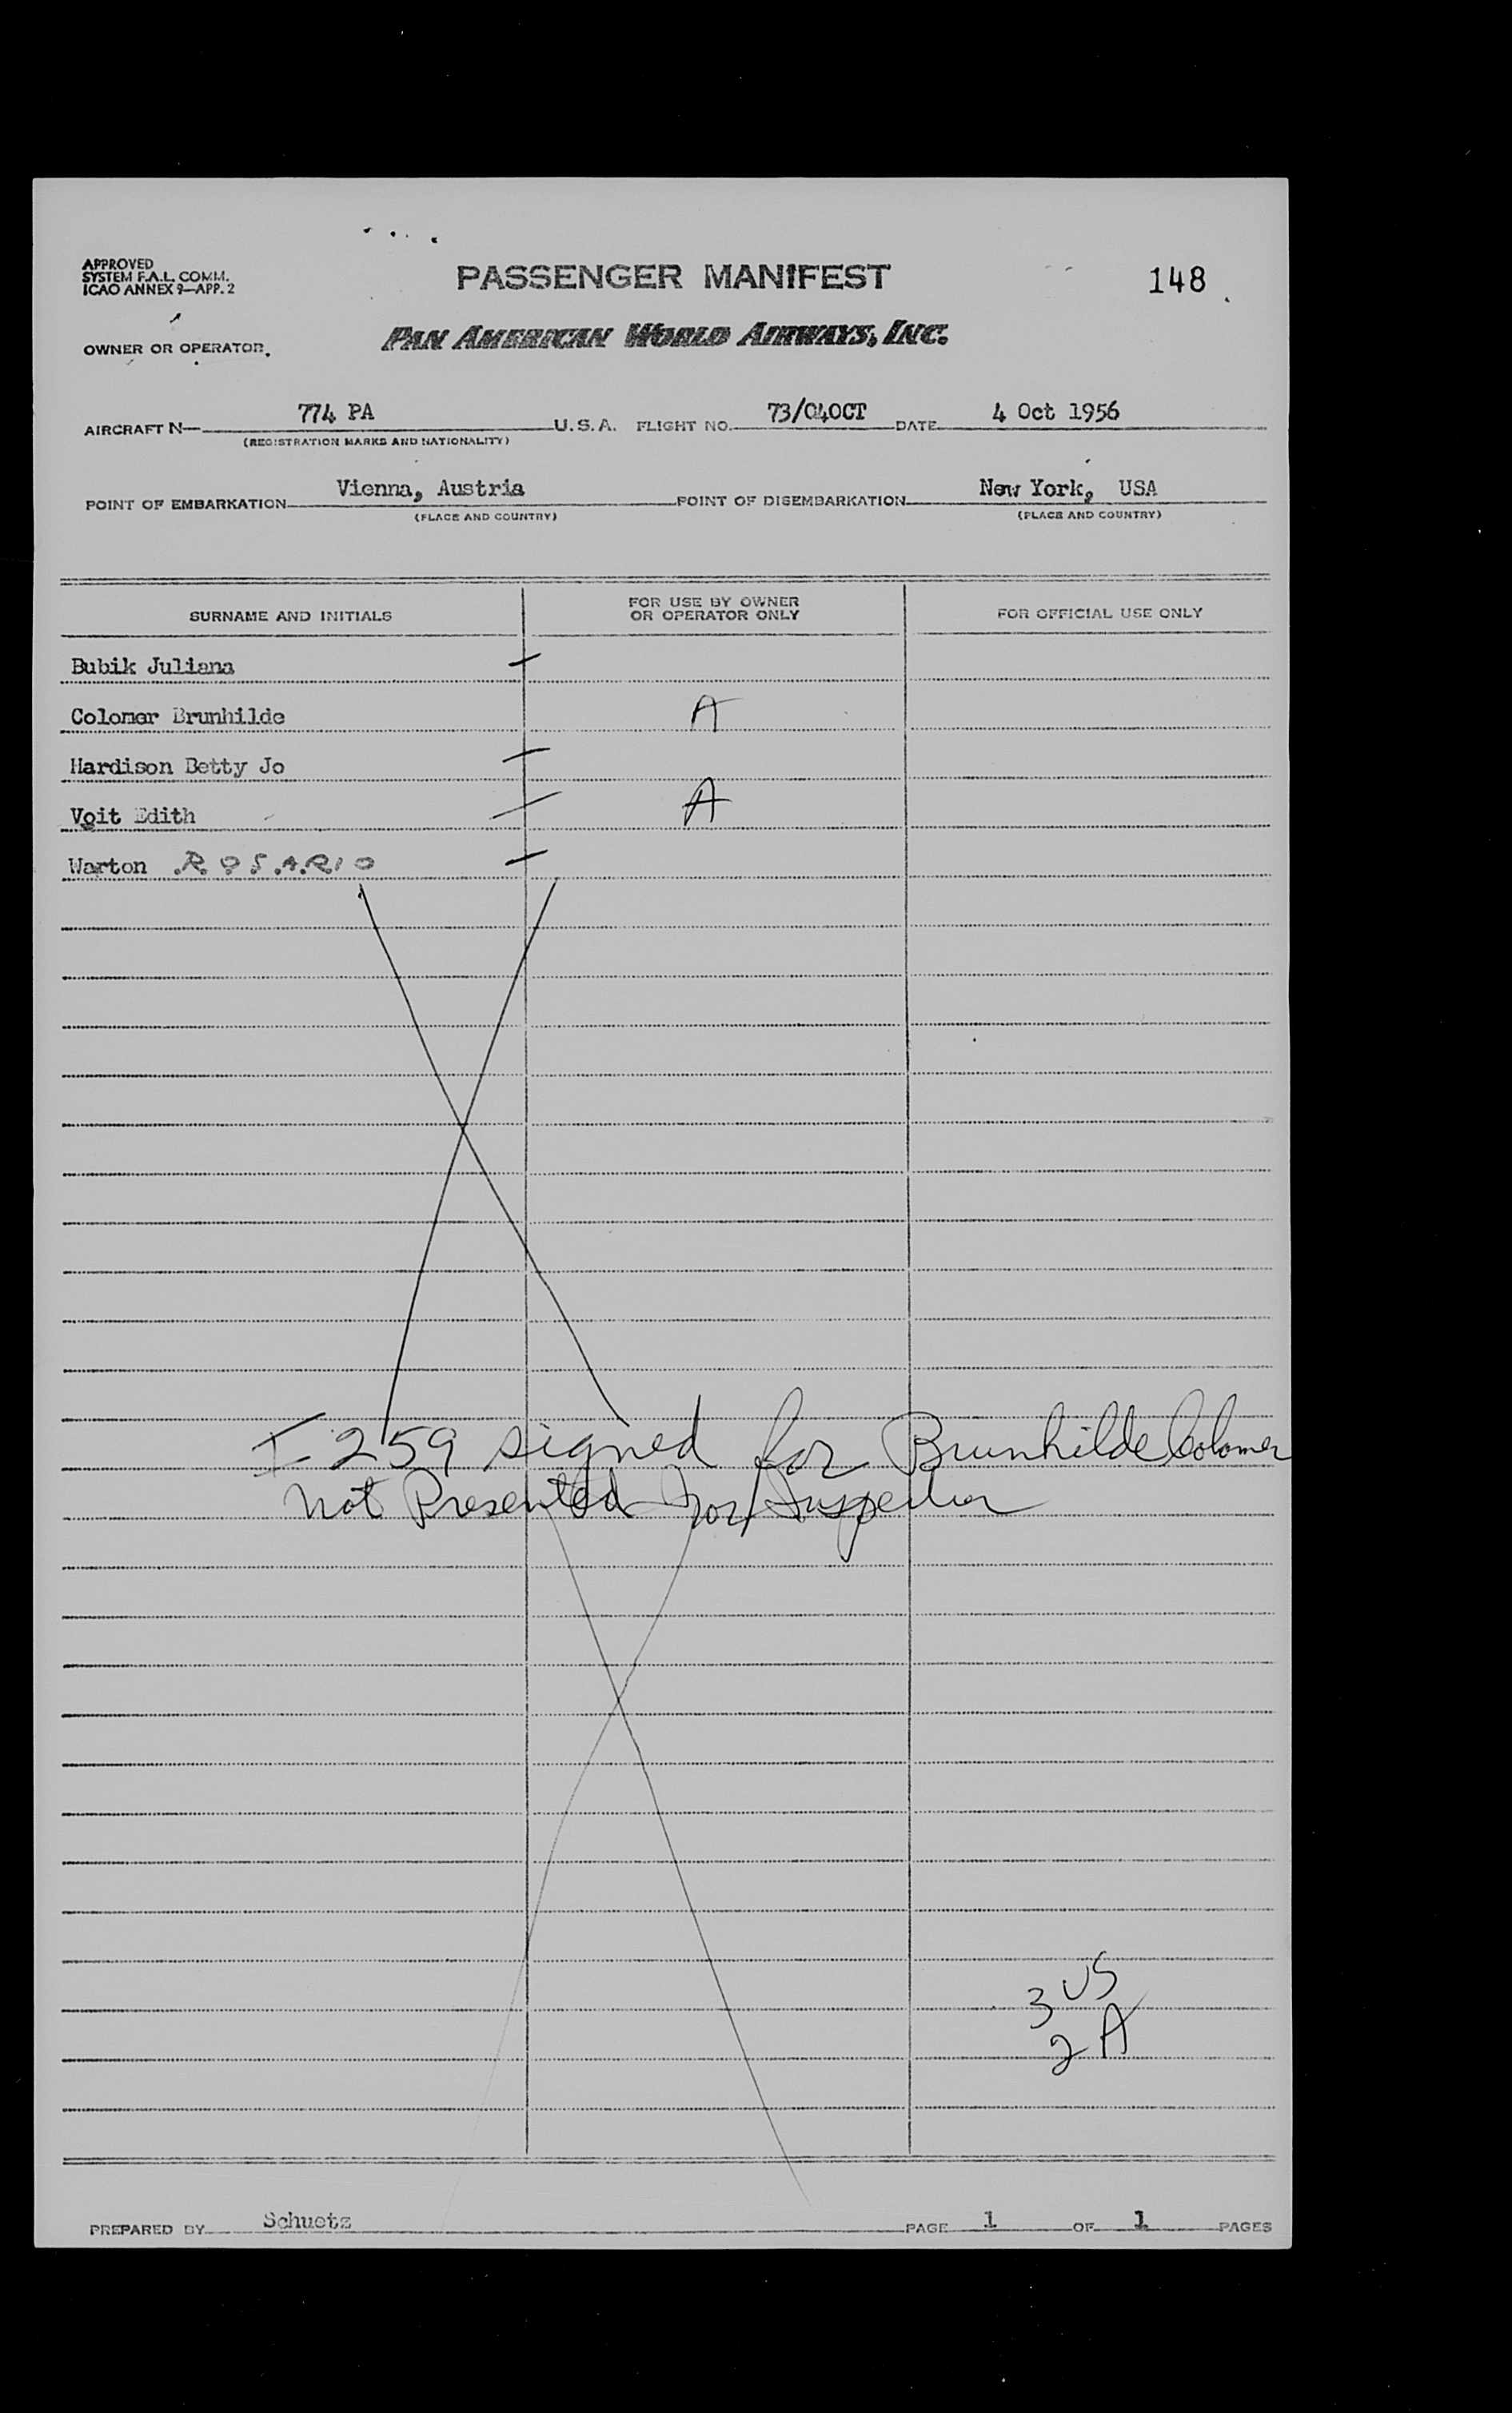 APPROVED
SYSTEM F.A.L. COMM.
ICAO ANNEX 9—APP. 2
PASSENGER MANIFEST
148
OWNER OR OPERATOR
PAN AMERICAN WORLD AIRWAYS, INC.
AIRCRAFT N— 774 PA U.S.A. FLIGHT NO. 73/04OCT DATE 4 Oct 1956
(REGISTRATION MARKS AND NATIONALITY)
POINT OF EMBARKATION Vienna, Austria POINT OF DISEMBARKATION New York, USA
(PLACE AND COUNTRY) (PLACE AND COUNTRY)
SURNAME AND INITIALS
FOR USE BY OWNER
OR OPERATOR ONLY
FOR OFFICIAL USE ONLY
Bubik Juliana
Colomer Brunhilde A
Hardison Betty Jo
Voit Edith A
Warton ROSARIO
I-259 signed for Brunhilde Colomer
Not Presented For Inspection
3 US
2 A
PREPARED BY Schuetz PAGE 1 OF 1 PAGES